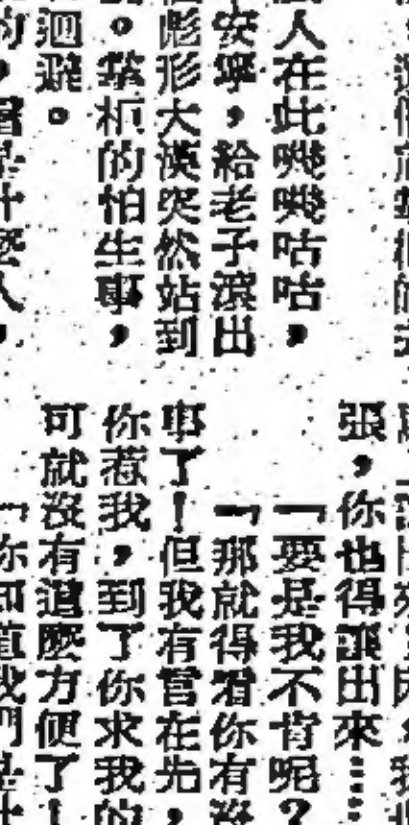 人在此嘰嘰咕咕，
安寧，給老子滾出
彪形大漢突然站到
。掌柜的怕生事，
迴避。
張，你也得讓出來……
「要是我不肯呢？
「那就得看你有沒
事了！但我有言在先，
你惹我，到了你求我的
可就沒有這麼方便了！
「你知道我們是什